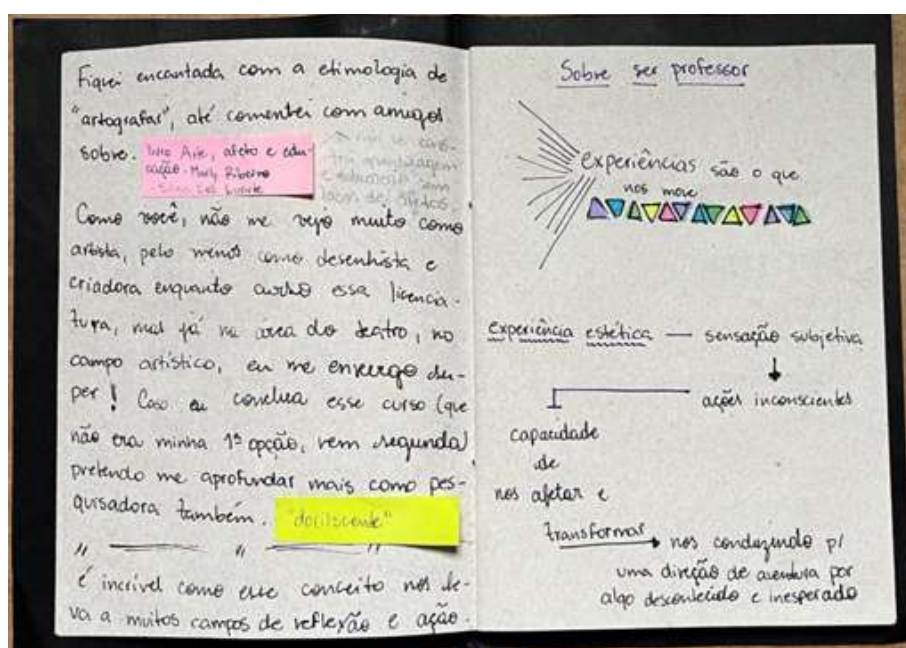 Fiquei encantada com a etimologia de
"artografar", até comentei com amigos
sobre.
Livro Arte, afeto e edu-
cação - Marly Ribeiro
não se cons-
trói aprendizagem
e autonomia sem
laços de afetos.
Como você, não me vejo muito como
artista, pelo menos como desenhista e
criadora enquanto curso essa licencia-
tura, mas já na área do teatro, no
campo artístico, eu me enxergo su-
per! Caso eu conclua esse curso (que
não era minha 1ª opção, nem segunda)
pretendo me aprofundar mais como pes-
quisadora também.
"docilscente"
" — " — "
é incrível como esse conceito nos le-
va a muitos campos de reflexão e ação.
Sobre ser professor
experiências são o que
nos move
experiência estética — sensação subjetiva
ações inconscientes
capacidade
de
nos afetar e
transformar → nos conduzindo p/
uma direção de aventura por
algo desconhecido e inesperado